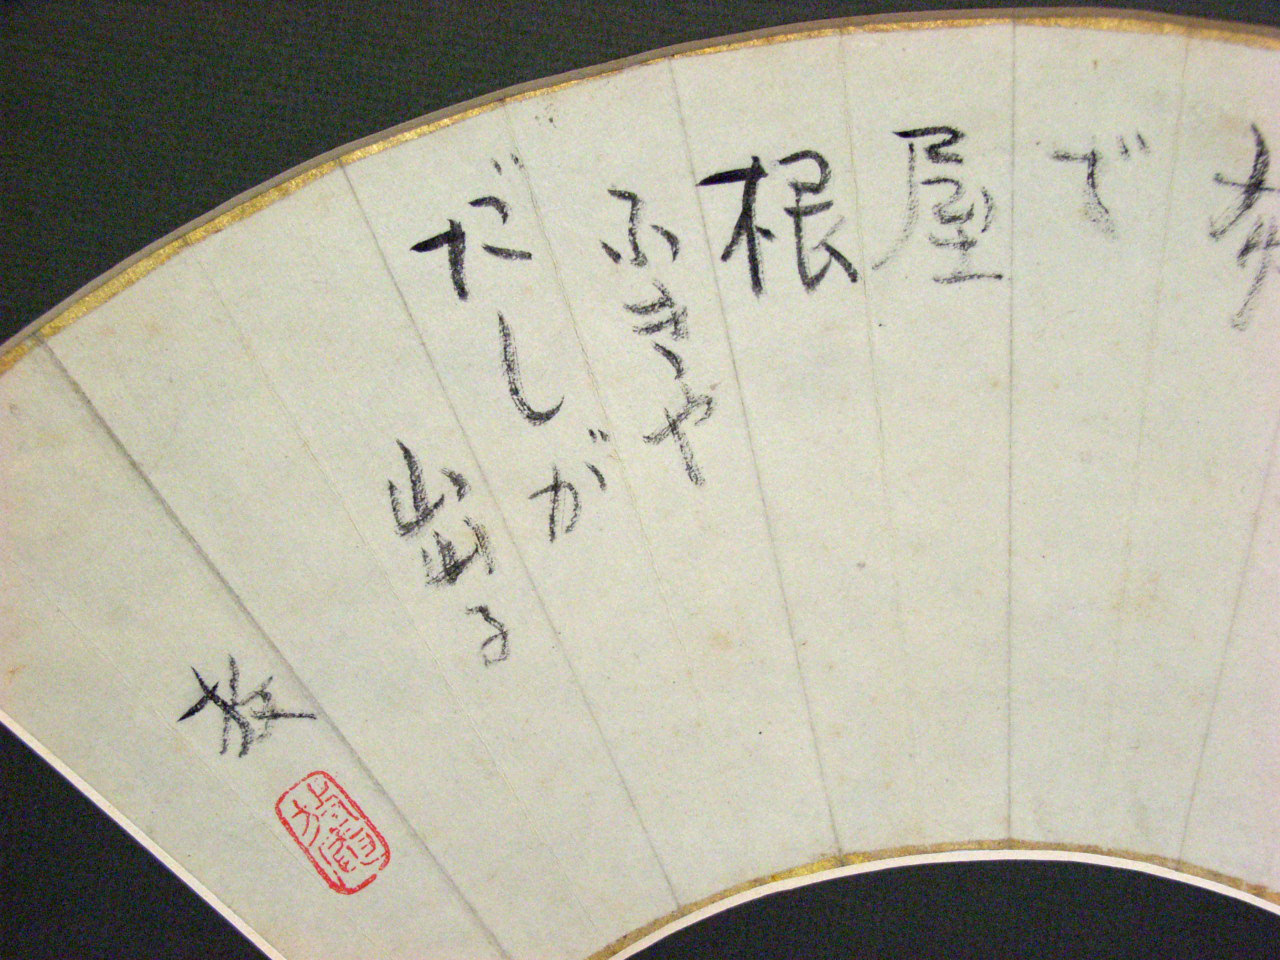 で
屋
根
ふきや
だしが
出る
放